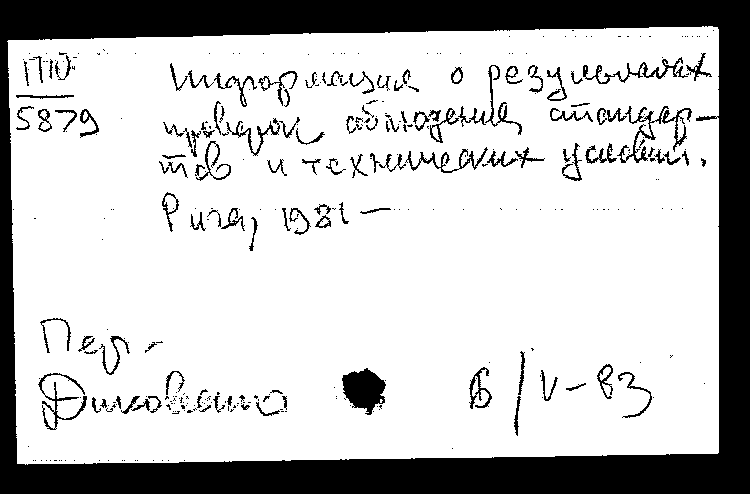 ПЮ
5879
Информация о результатах
проверок соблюдения стандар-
тов и технических условий.
Рига, 1981 —
Пер. -
Б/V-83